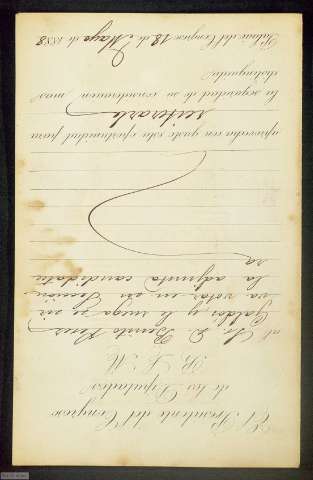 El Presidente del Congreso
de los Diputados
B. L. M.
al Sr. D. Benito Perez
Galdós y le ruega se sir
va votar en su Seccion
la adjunta candidatu
ra
aprovecha con gusto esta oportunidad para
reiterarle
la seguridad de su consideracion mas
distinguida.
Palacio del Congreso 18 de Mayo de 1888